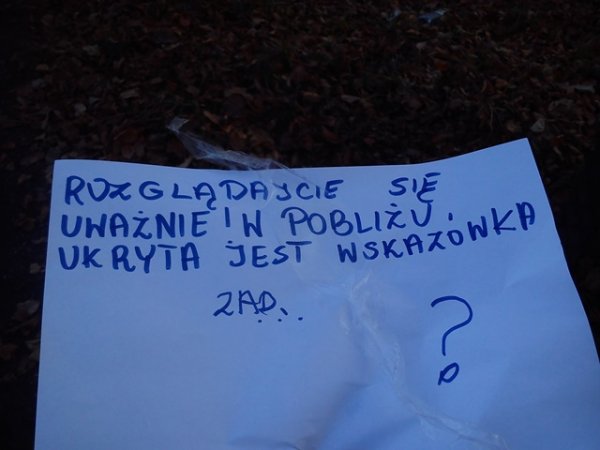 ROZGLĄDAJCIE SIĘ
UWAŻNIE! W POBLIŻU,
UKRYTA JEST WSKAZÓWKA
ZAD...
?